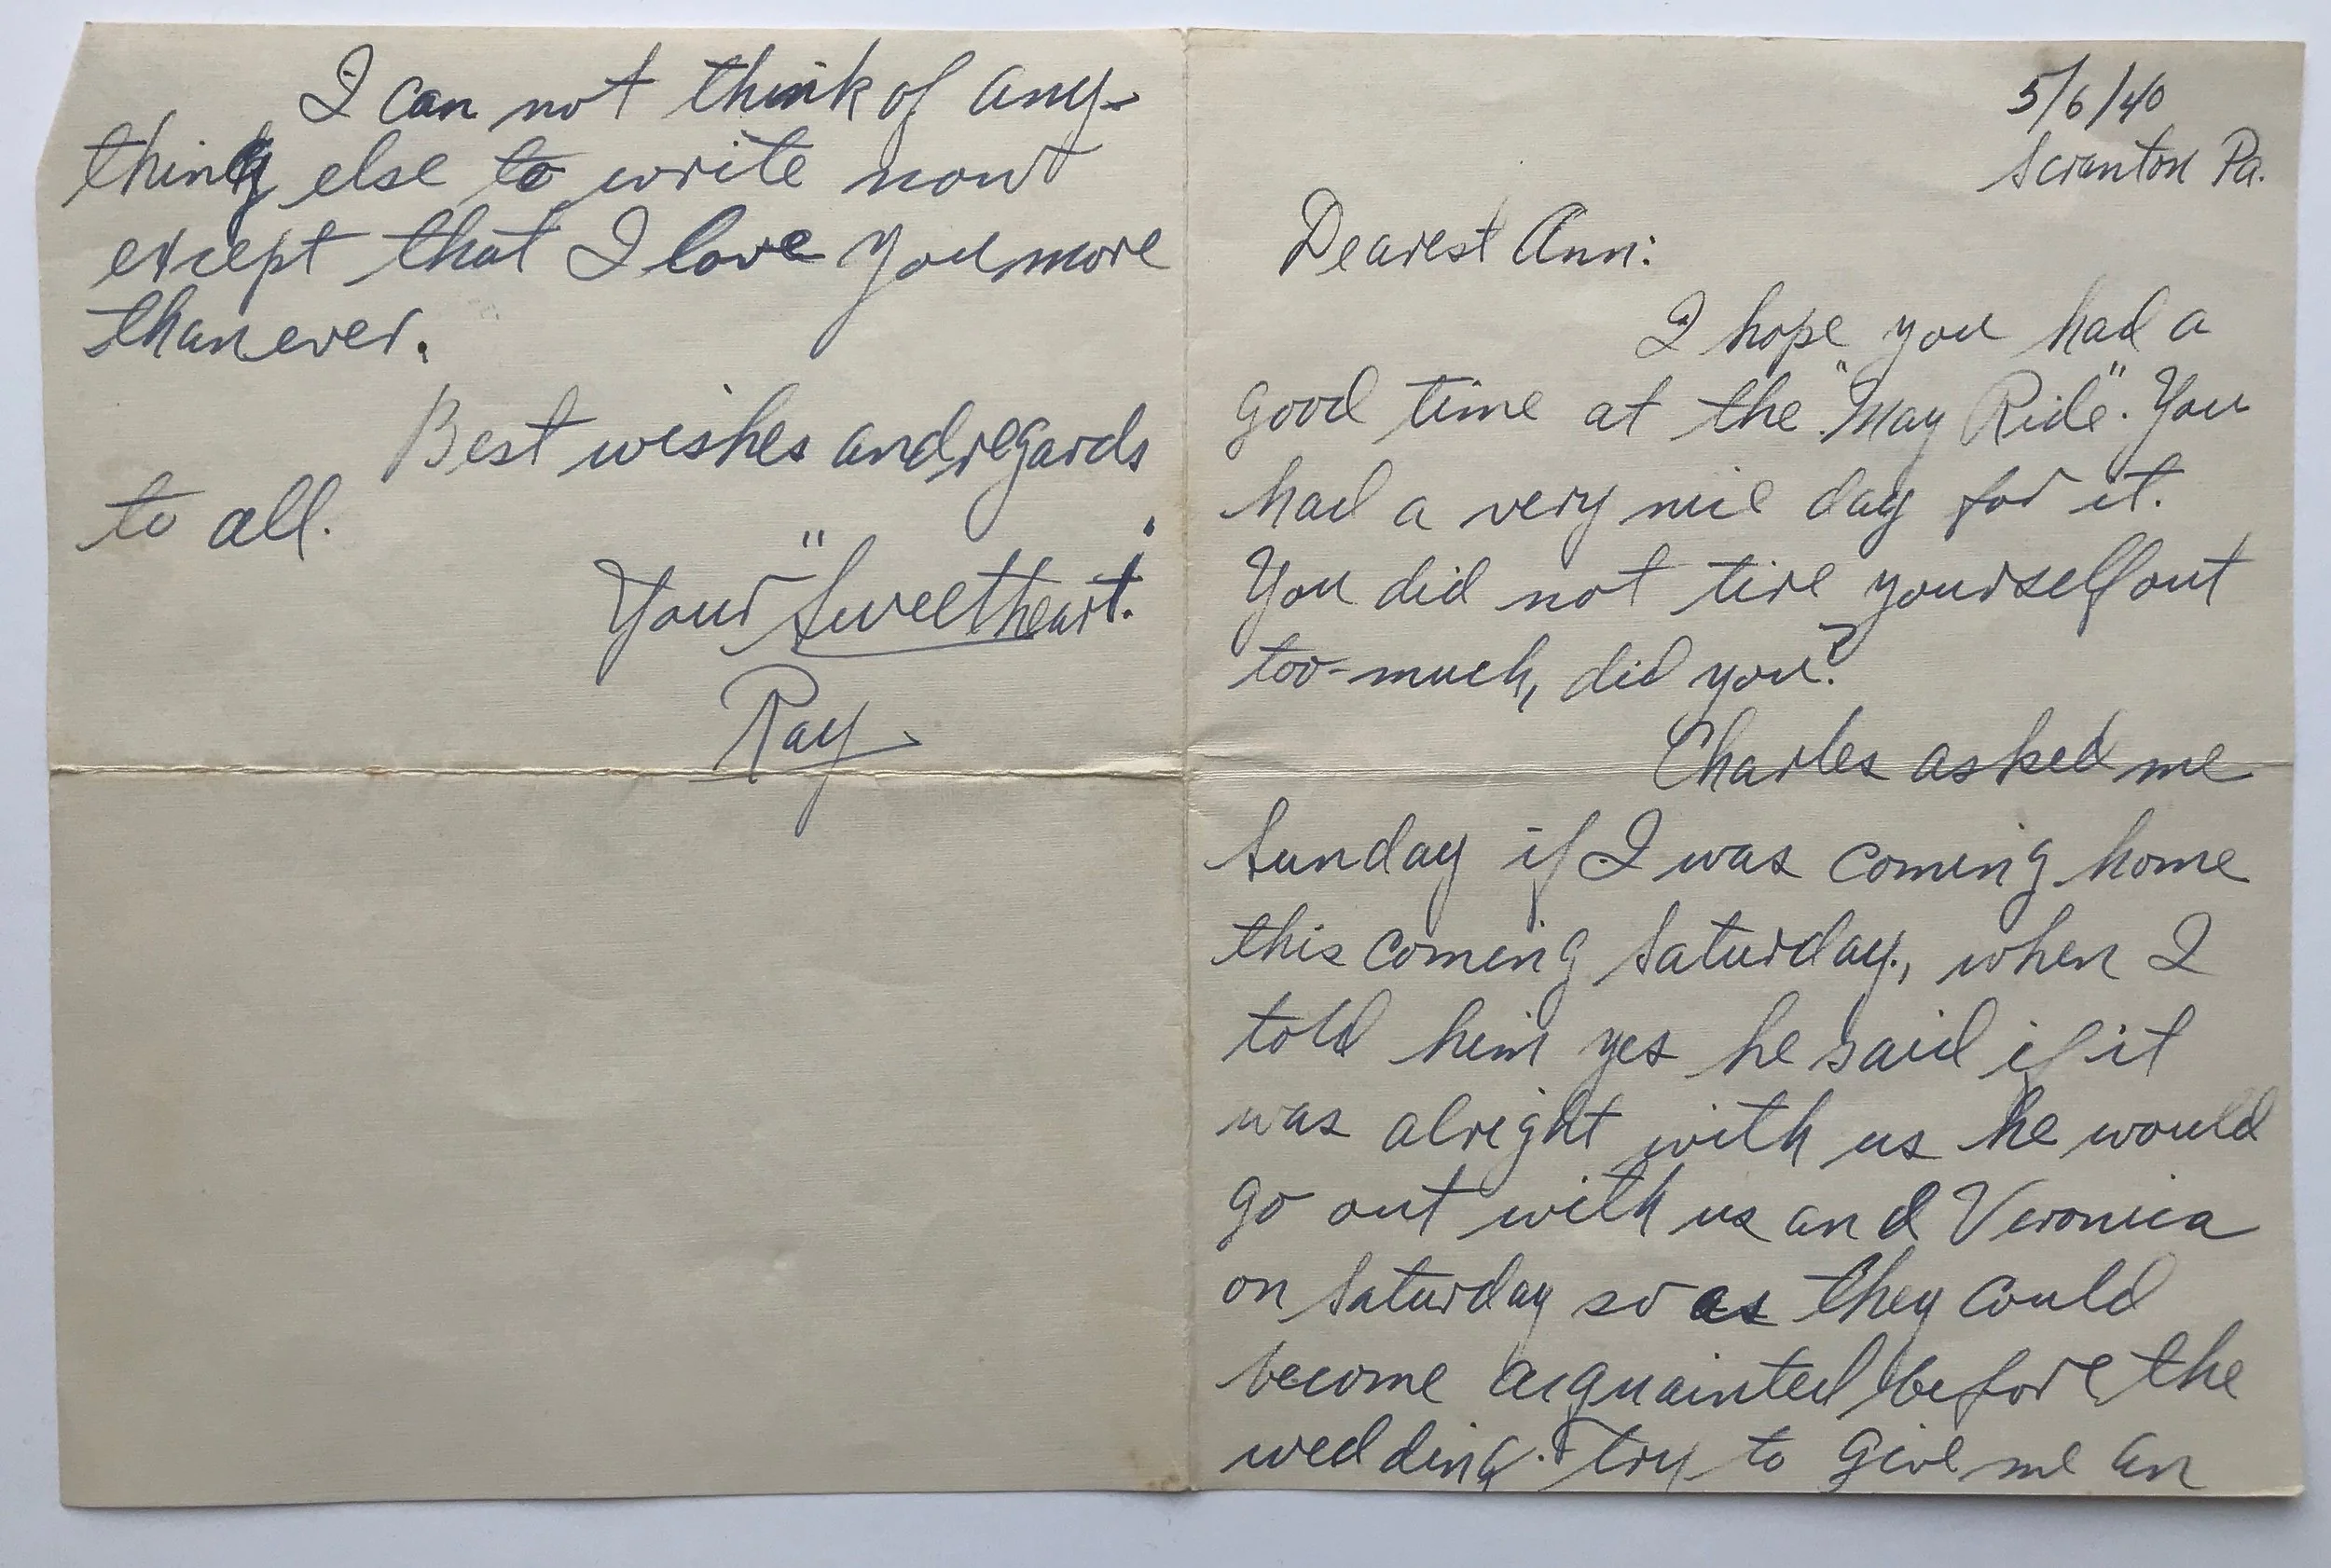 5/6/40
Scranton Pa.
Dearest Ann:
I hope you had a
good time at the "May Ride". You
had a very nice day for it.
You did not tire yourself out
too-much, did you?
Charles asked me
Sunday if I was coming home
this coming Saturday., when I
told him yes he said if it
was alright with us he would
go out with us and Veronica
on Saturday so as they could
become acquainted before the
wedding. Try to give me an
I can not think of any-
thing else to write now
except that I love you more
than ever.
Best wishes and regards
to all.
Your "Sweetheart."
Ray